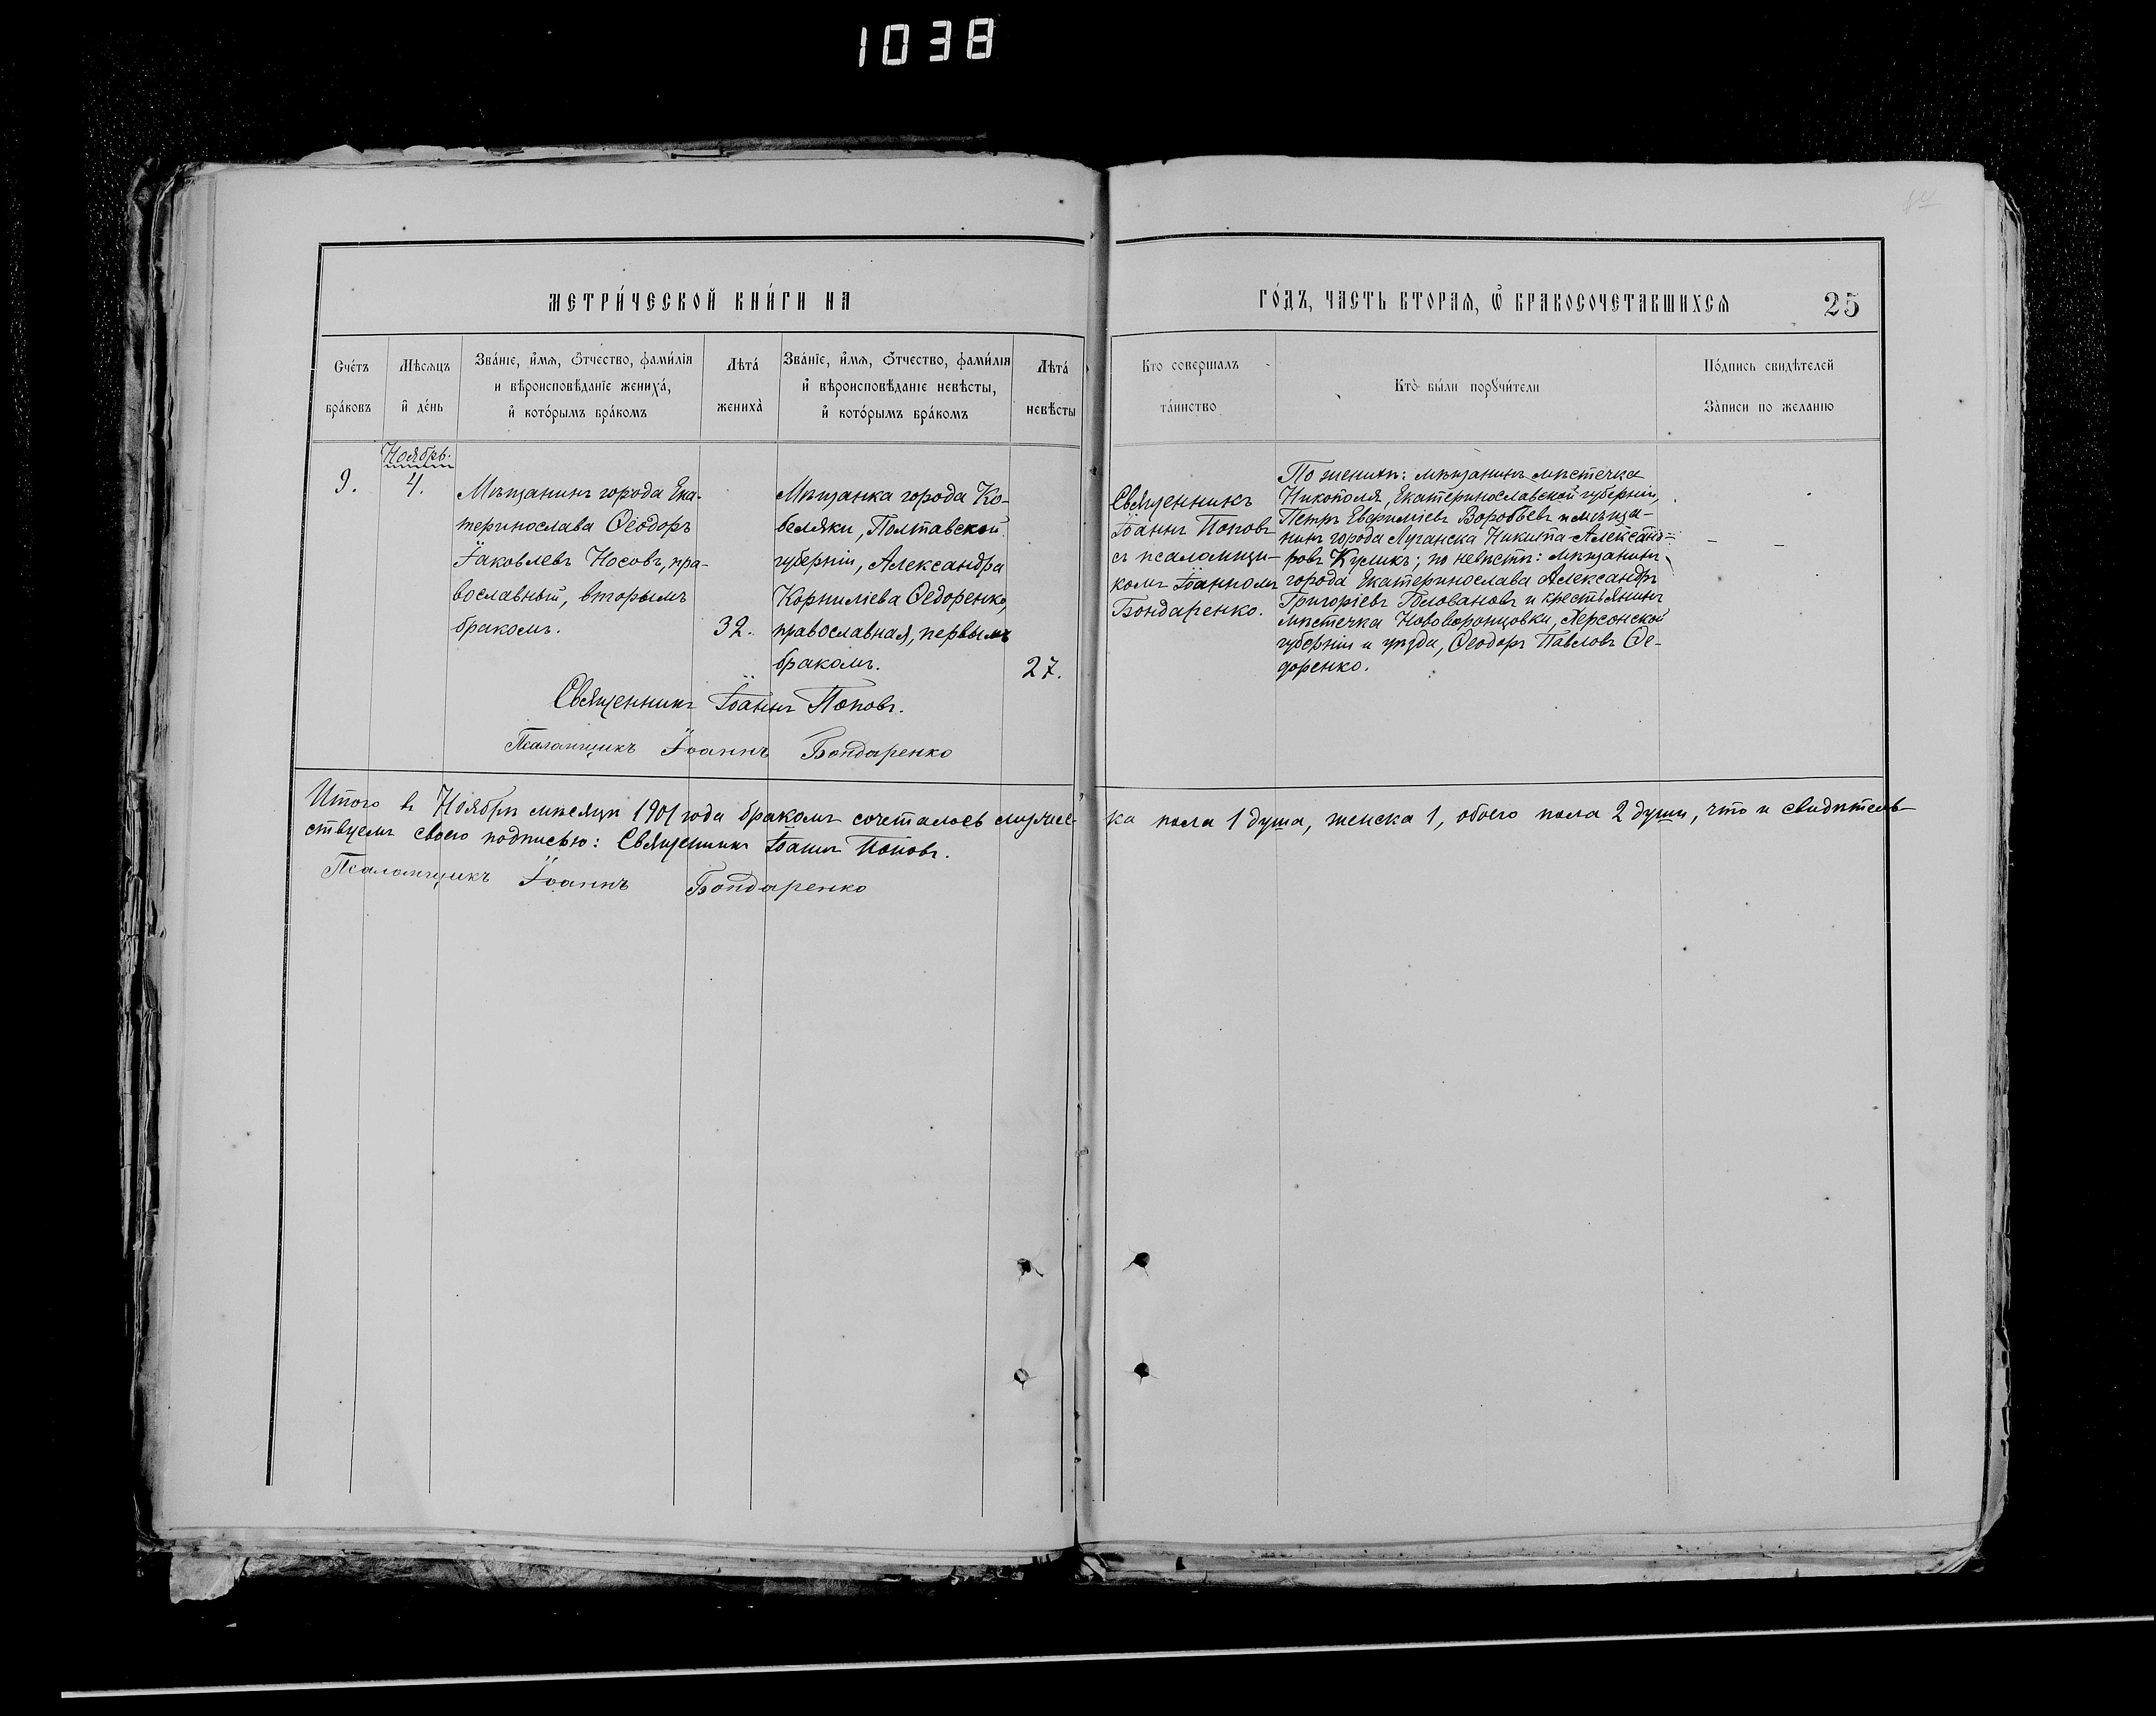 1038
МЕТРИ́ЧЕСКОЙ КНИ́ГИ НА
ГО́ДЪ, ЧАСТЬ ВТОРАЯ, Ѡ҆ БРАКОСОЧЕТАВШИХСЯ
25
Сче́тъ бра́ковъ
Мѣсяцъ и҆ де́нь
Зва́нїе, и҆́мя, ѻ҆́тчество, фами́лїя
и вѣроисповѣ́данїе жениха́,
и҆ кото́рымъ бра́комъ
Лѣта́ жениха̀
Зва́нїе, и҆́мя, ѻ҆́тчество, фами́лїя
и҆ вѣроисповѣ́данїе невѣ́сты,
и҆ кото́рымъ бра́комъ
Лѣта́ невѣ́сты
Кто совершалъ
та́инство
Кто̀ бы́ли порꙋчи́тели
По́дпись свидѣ́телей
За̀писи по желанію
Ноябрь.
9.
4.
Мѣщанинъ города Ека-
теринослава Ѳеодоръ
Іаковлевъ Носовъ, пра-
вославный, вторымъ
бракомъ.
32.
Мѣщанка города Ко-
беляки, Полтавской
губерніи, Александра
Корниліева Ѳедоренко,
православная, первымъ
бракомъ.
27.
Священникъ Іоаннъ Поповъ.
Псаломщикъ Іоаннъ Бондаренко
Священникъ
Іоаннъ Поповъ
съ псаломщи-
комъ Іоанномъ
Бондаренко.
По женихѣ: мѣщанинъ мѣстечка
Никополя, Екатеринославской губерніи,
Петръ Евфиміевъ Воробьевъ и мѣща-
нинъ города Луганска Никита Александ-
ровъ Куликъ; по невѣстѣ: мѣщанинъ
города Екатеринослава Александръ
Григоріевъ Головановъ и крестьянинъ
мѣстечка Нововоронцовки, Херсонской
губерніи и уѣзда, Ѳеодоръ Павловъ Ѳе-
доренко.
– –
Итого въ Ноябрѣ мѣсяцѣ 1901 года бракомъ сочеталось мужес-
ка пола 1 душа, женска 1, обоего пола 2 души, что и свидѣтель-
ствуемъ своею подписью: Священникъ Іоаннъ Поповъ.
Псаломщикъ Іоаннъ Бондаренко